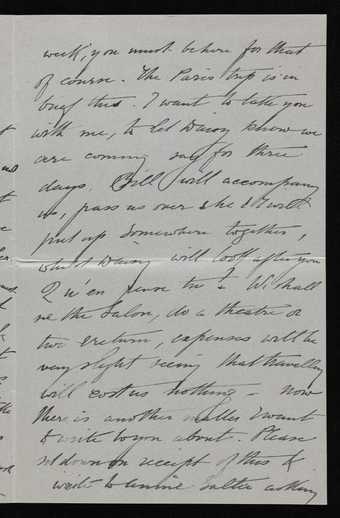 week, you must be here for that
of course. The Paris trip is in
brief this. I want to take you
with me, to let Daisy know we
are coming say for three
days. Bill will accompany
us, pass us over & he & I will
put up somewhere together,
whilst Daisy will look after you
Qu'en pense tu? We shall
see the Salon, do a theatre or
two & return, expenses will be
very slight seeing that travelling
will cost us nothing - now
there is another matter I want
to write to you about. Please
sit down on receipt of this &
write to asking